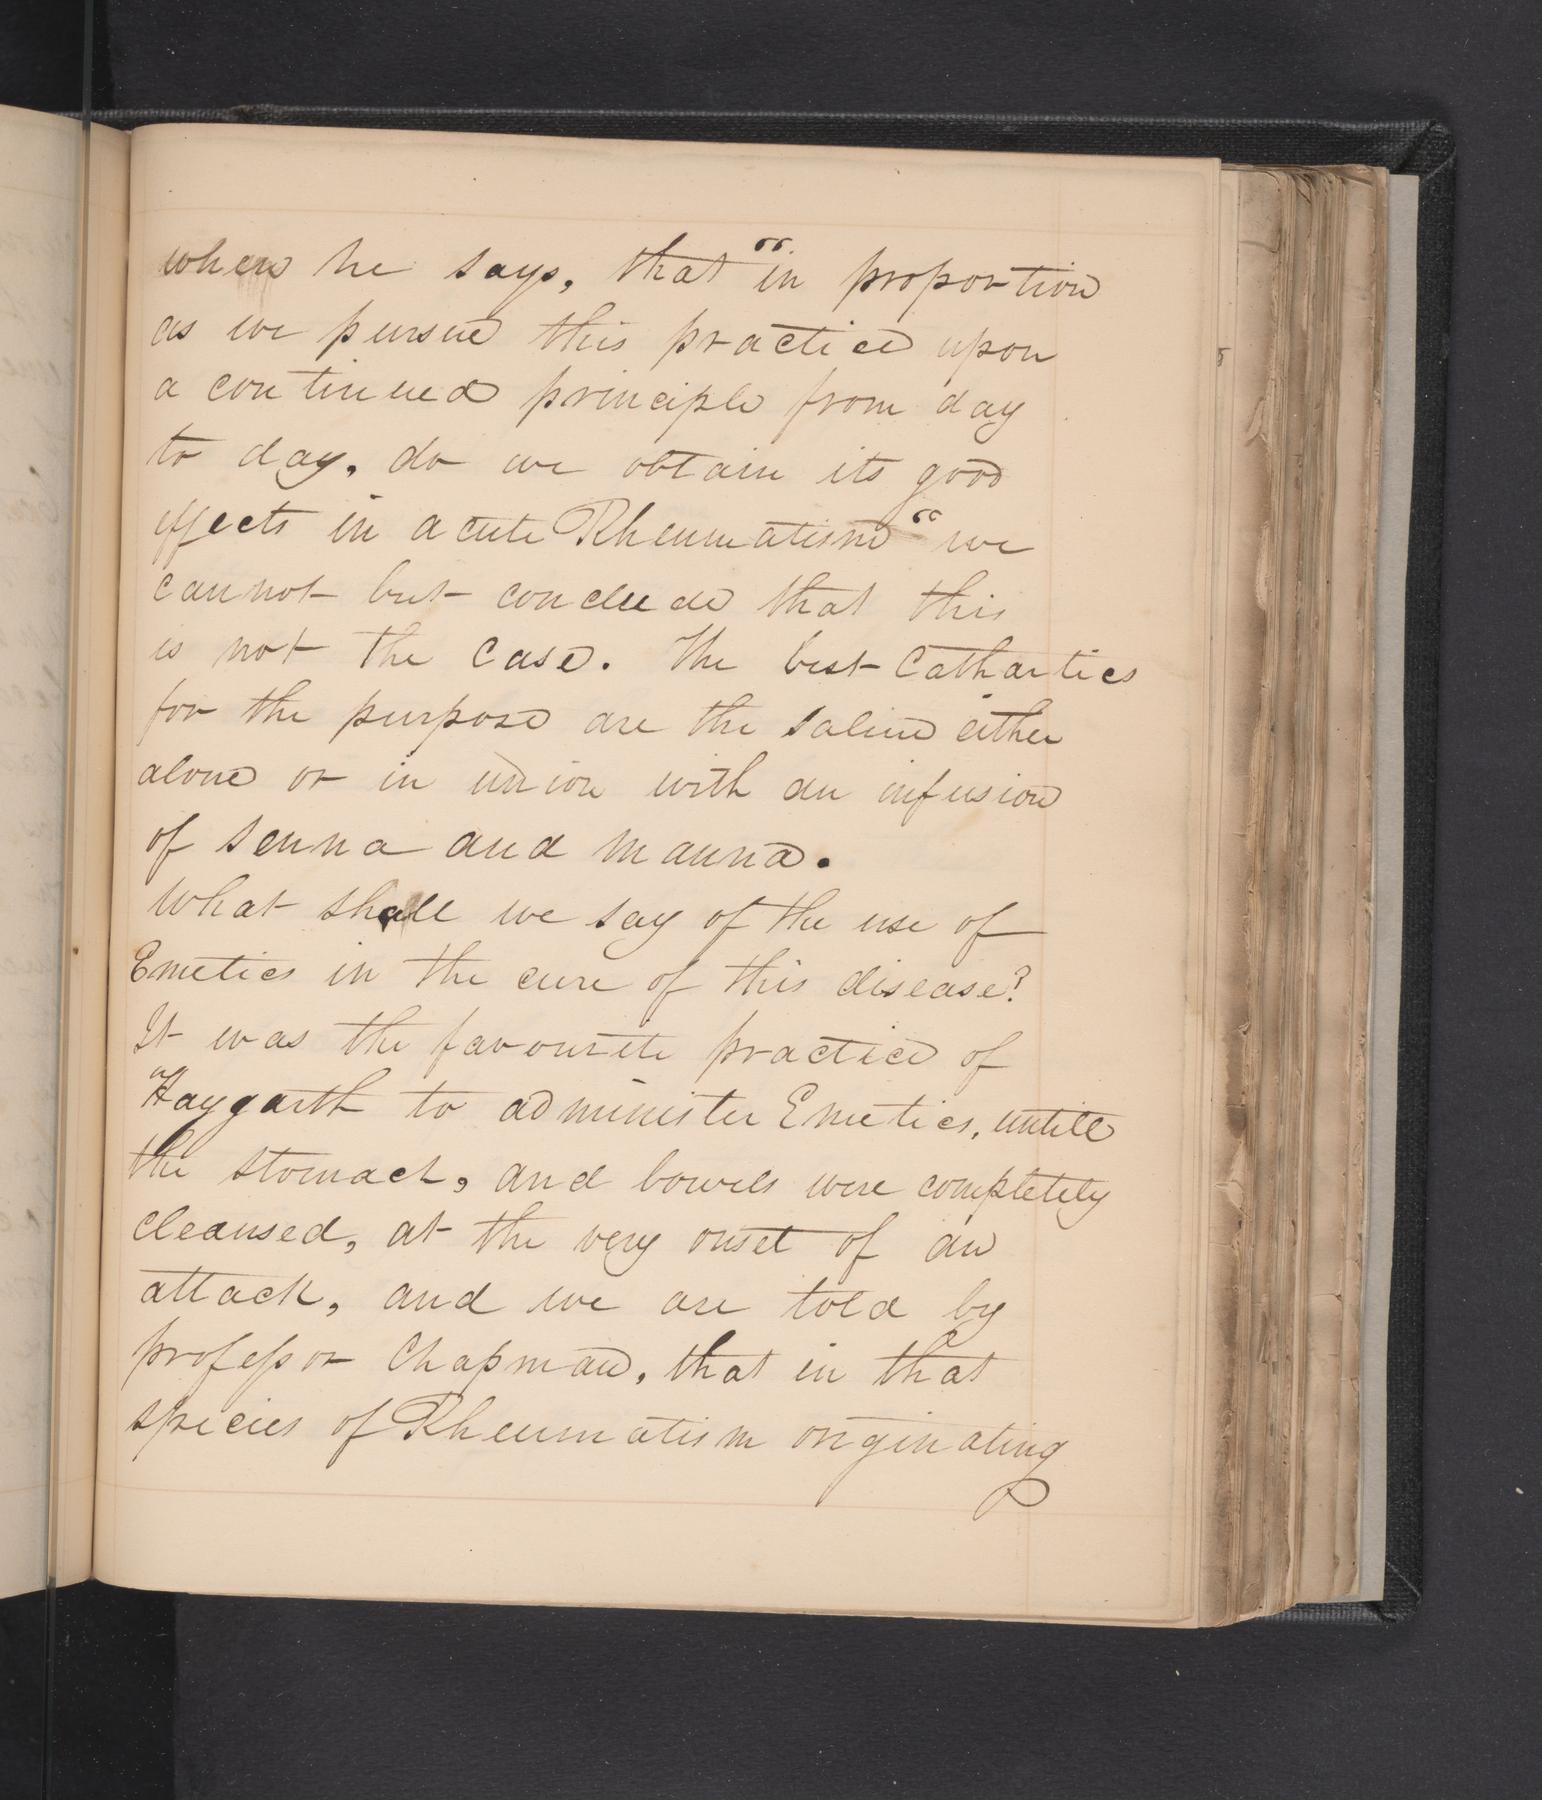 when he says, that "in proportion
as we pursue this practice upon
a continued principle from day
to day, do we obtain its good
effects in acute Rheumatism" we
cannot but conclude that this
is not the case. The best Cathartics
for the purpose are the saline either
alone or in union with an infusion
of senna and manna.
What shall we say of the use of
Emetics in the cure of this disease?
It was the favourite practice of
Haygarth to administer Emetics, untill
the stomach, and bowels were completely
cleansed, at the very onset of an
attack, and we are told by
professor Chapman, that in that
species of Rheumatism originating